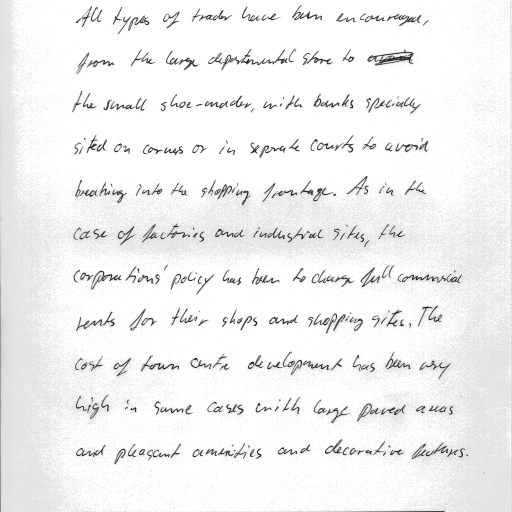 All types of trader have been encouraged,
from the large departmental store to
the small shoe-mender, with banks specially
sited on corners or in separate courts to avoid
breaking into the shopping frontage. As in the
case of factories and industrial sites, the
corporations' policy has been to charge full commercial
rents for their shops and shopping sites. The
cost of town centre development has been very
high in some cases with large paved areas
and pleasant amenities and decorative features.